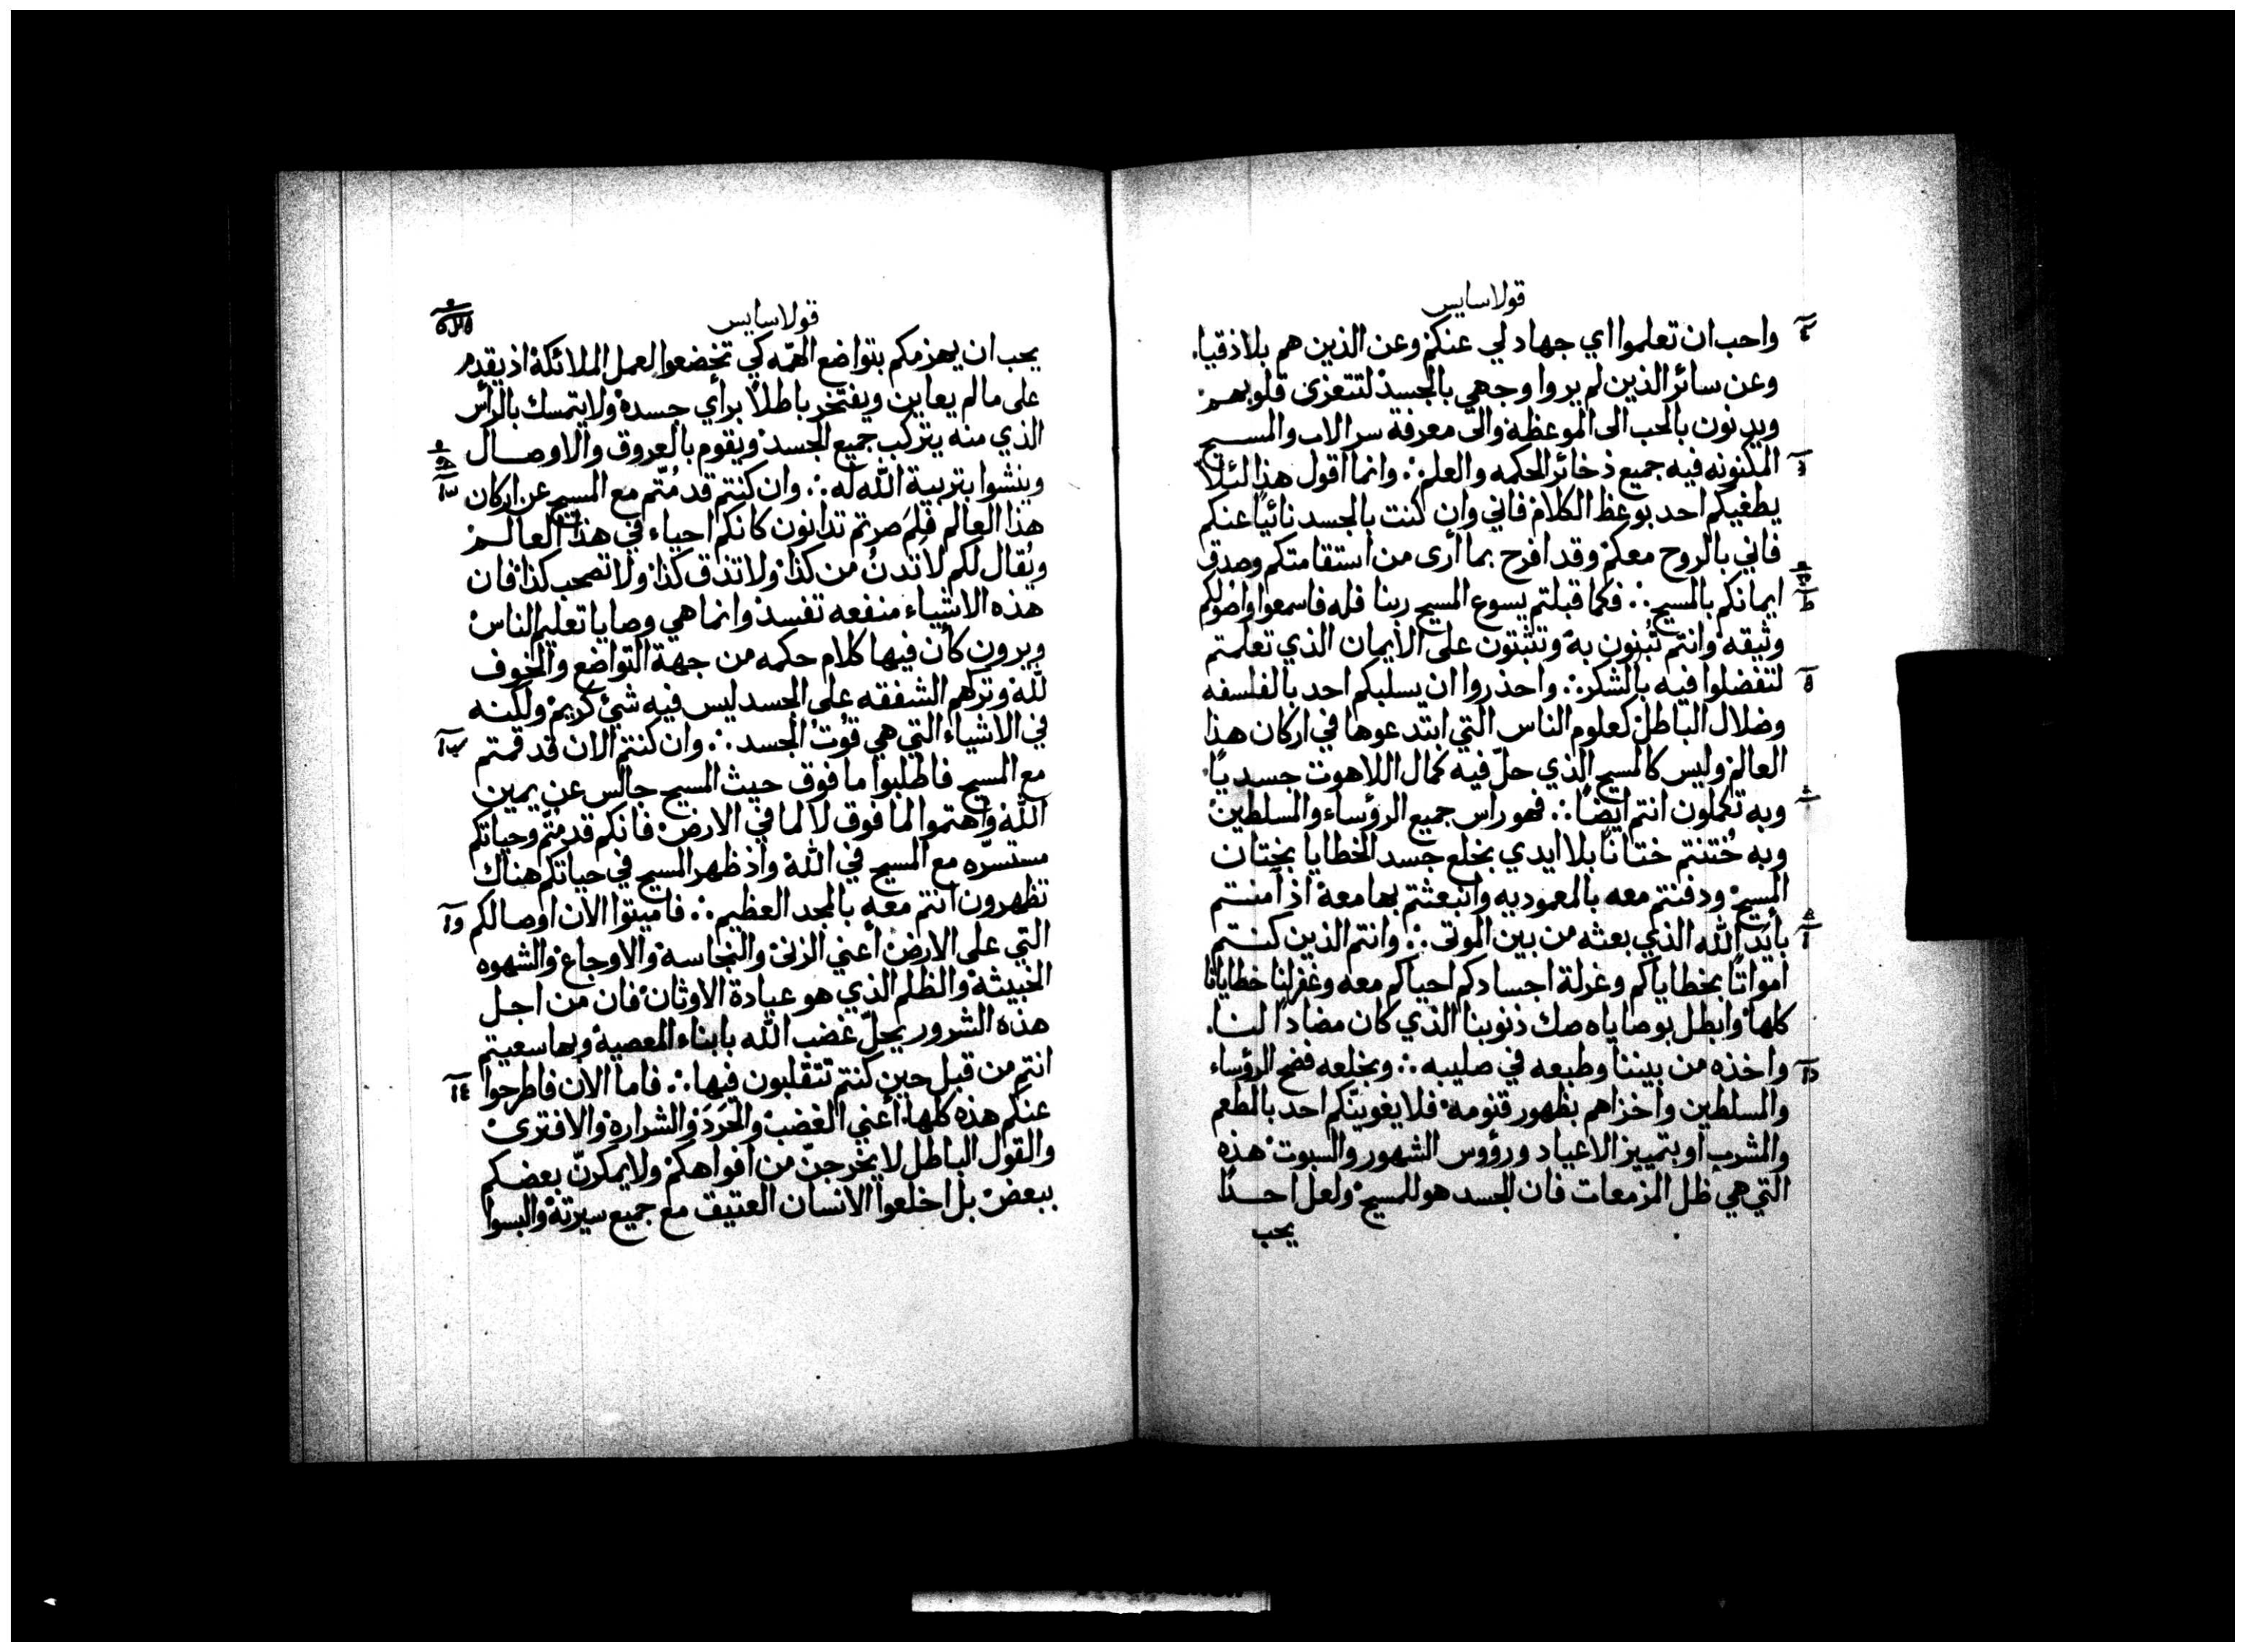 قولاسايس
واحب ان تعلموا اي جهاد لي عنكم وعن الذين هم بلاذقيا.
وعن سائر الذين لم يروا وجهي بالجسد لتتعزى قلوبهم
ويدنون بالحب الى الموعظة والى معرفة سر الاب والمسيح
المكنونه فيه جميع ذخائر الحكمه والعلم ∴ وانما اقول هذا لئلا
يطغيكم احد بوعظ الكلام فاني وان كنت بالجسد نائيا عنكم
فاني بالروح معكم وقد افرح بما أرى من استقامتكم وصدق
ايمانكم بالمسيح ∴ فكما قبلتم يسوع المسيح ربنا فله فاسمعوا واصولكم
وثيقه وانتم تبنون به وتثبتون على الايمان الذي تعلمتم
لتفضلوا فيه بالشكر ∴ واحذروا ان يسلبكم احد بالفلسفه
وضلال الباطل كعلوم الناس التي ابتدعوها في اركان هذا
العالم وليس كالمسيح الذي حلّ فيه كمال اللاهوت جسديًا
وبه تكملون انتم ايضًا ∴ فهو راس جميع الرؤساء والسلطين
وبه خُتنتم ختانًا بلا ايدي بخلع جسد الخطايا بختان
المسيح ودفنتم معه بالمعموديه وانبعثتم بها معه اذ آمنتم
بأيد الله الذي بعثه من بين الموتى ∴ وانتم الذين كنتم
امواتًا بخطاياكم وغرلة اجسادكم احياكم معه وغفر لنا خطايانا
كلها وابطل بوصاياه صك ذنوبنا الذي كان مضادًا لنا.
واخذه من بيننا وطبعه في صليبه ∴ وبخلعه فضح الرؤساء
والسلطين واخزاهم بظهور قنومه فلا يغوينكم احد بالطعم
والشرب او بتمييز الاعياد ورؤوس الشهور والسبوت هذه
التي هي ظل المزمعات فان الجسد هو للمسيح ولعل احدًا
يحب
قولاسايس
يحب ان يهزمكم بتواضع الهمّه كي تخضعوا لعمل الملائكة اذ يقدم
على ما لم يعاين ويفتخر باطلاً برأي جسده ولا يتمسك بالرأس
الذي منه يتركب جميع الجسد ويقوم بالعروق والاوصال
وينشوا بتربية الله له ∴ وان كنتم قد مُتّم مع المسيح عن اركان
هذا العالم فلِمَ صرتم تدانون كانكم احياء في هذا العالم
ويُقال لكم لا تدنُ من كذا ولا تذق كذا ولا تصحب كذا فان
هذه الاشياء منفعه تفسد وانما هي وصايا تعليم الناس
ويرون كأن فيها كلام حكمه من جهة التواضع والخوف
لله وتركهم الشفقه على الجسد ليس فيه شيء كريم ولكنه
في الاشياء التي هي قوت الجسد ∴ وان كنتم الان قد قمتم
مع المسيح فاطلبوا ما فوق حيث المسيح جالس عن يمين
الله واهتموا لما فوق لا لما في الارض فانكم قد متّم وحياتكم
مستسرّه مع المسيح في الله واذ ظهر المسيح في حياتكم هناك
تظهرون انتم معه بالمجد العظيم ∴ فاميتوا الان اوصالكم
التي على الارض أعني الزنى والنجاسة والاوجاع والشهوه
الخبيثة والظلم الذي هو عبادة الاوثان فان من اجل
هذه الشرور يحلّ غضب الله بابناء المعصية وبها سعيتم
انتم من قبل حين كنتم تتقلبون فيها ∴ فاما الان فاطرحوا
عنكم هذه كلها أعني الغضب والحَرَدَ والشراره والافترى
والقول الباطل لا يخرجنّ من افواهكم ولا يمكرنّ بعضكم
ببعض بل اخلعوا الانسان العتيق مع جميع سيرته والبسوا